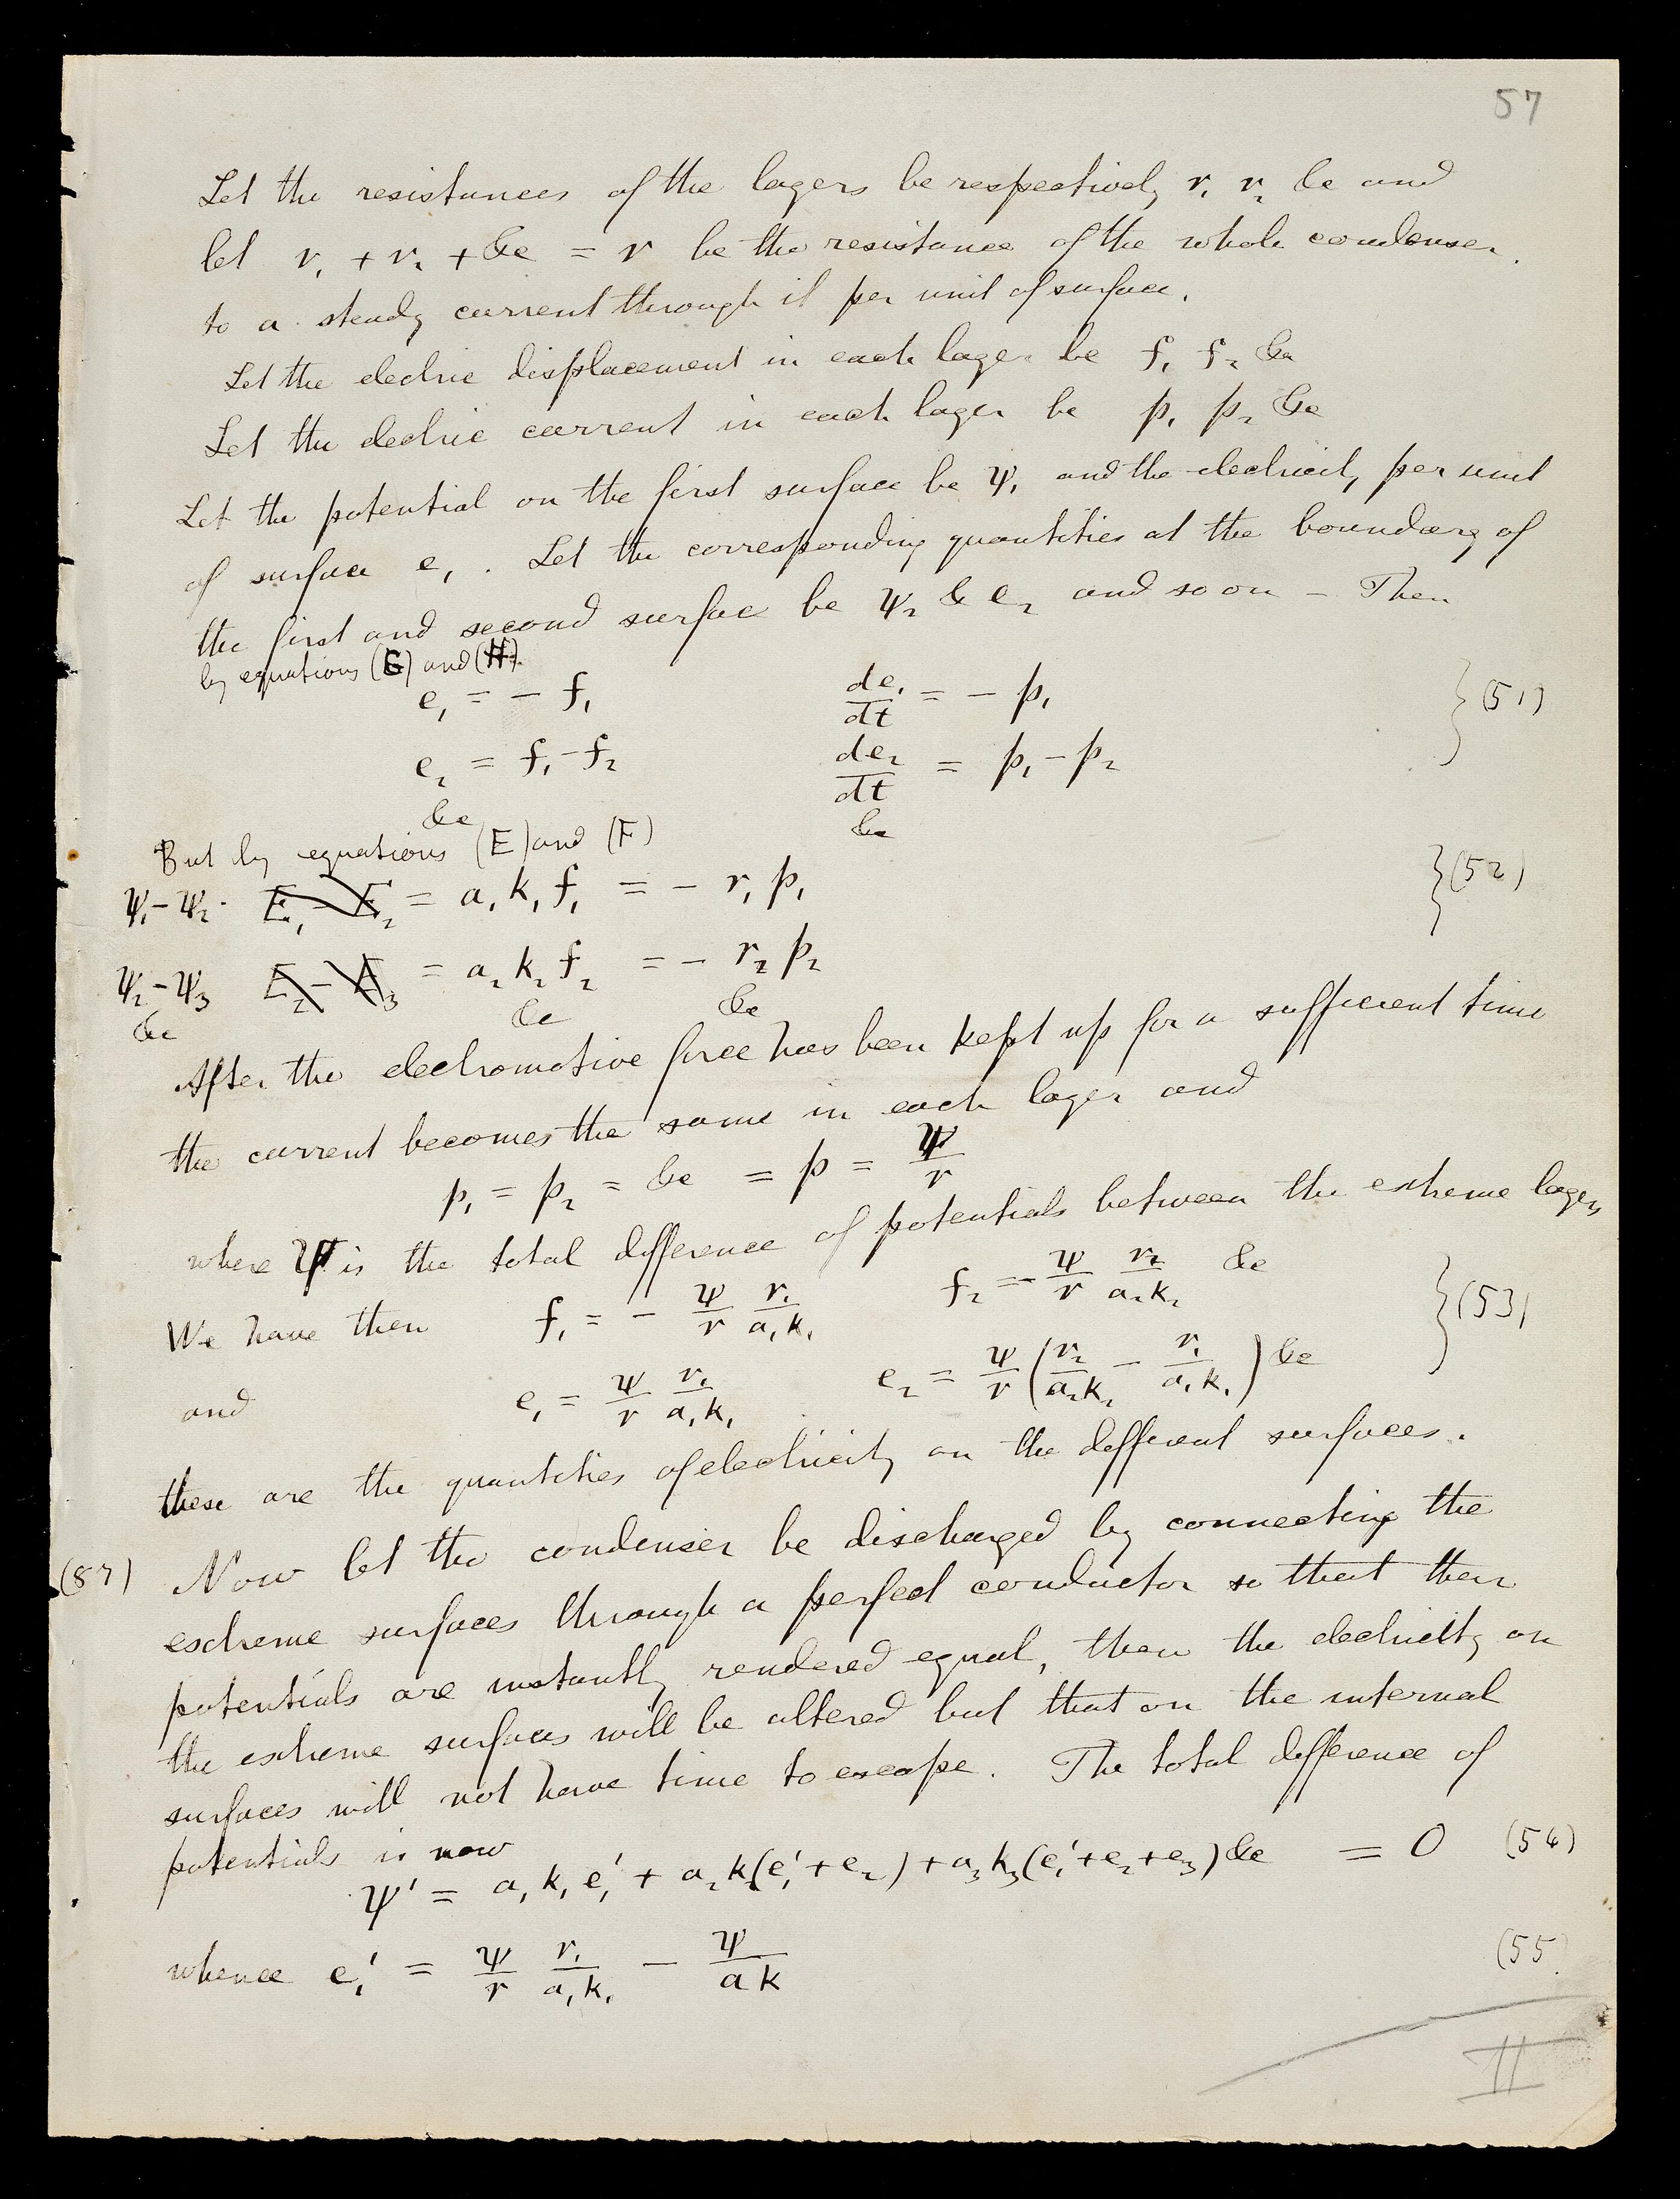 57
Let the resistances of the layers be respectively r₁ r₂ &c and
let r₁ + r₂ + &c = r be the resistance of the whole condenser
to a steady current through it per unit of surface.
Let the electric displacement in each layer be f₁ f₂ &c
Let the electric current in each layer be p₁ p₂ &c
Let the potential on the first surface be Ψ₁ and the electricity per unit
of surface e₁. Let the corresponding quantities at the boundary of
the first and second surface be Ψ₂ & e₂ and so on – Then
by equations (G) and (H).
e₁ = − f₁ de₁/dt = − p₁ } (51)
e₂ = f₁ − f₂ de₂/dt = p₁ − p₂
&c &c
But by equations (E) and (F)
Ψ₁ − Ψ₂ E₁ − E₂ = a₁ k₁ f₁ = − r₁ p₁ } (52)
Ψ₂ − Ψ₃ E₂ − E₃ = a₂ k₂ f₂ = − r₂ p₂
&c &c &c
After the electromotive force has been kept up for a sufficient time
the current becomes the same in each layer and
p₁ = p₂ = &c = p = Ψ/r
where Ψ is the total difference of potentials between the extreme layers
We have then f₁ = − Ψ/r r₁/a₁k₁ f₂ = − Ψ/r r₂/a₂k₂ &c } (53)
and e₁ = Ψ/r r₁/a₁k₁ e₂ = Ψ/r (r₂/a₂k₂ − r₁/a₁k₁) &c
these are the quantities of electricity on the different surfaces.
(87) Now let the condenser be discharged by connecting the
extreme surfaces through a perfect conductor so that their
potentials are instantly rendered equal, then the electricity on
the extreme surfaces will be altered but that on the internal
surfaces will not have time to escape. The total difference of
potentials is now
Ψ′ = a₁ k₁ e₁′ + a₂ k₂(e₁′ + e₂) + a₃ k₃(e₁′ + e₂ + e₃) &c = 0 (54)
whence e₁′ = Ψ/r r₁/a₁k₁ − Ψ/ak (55
II